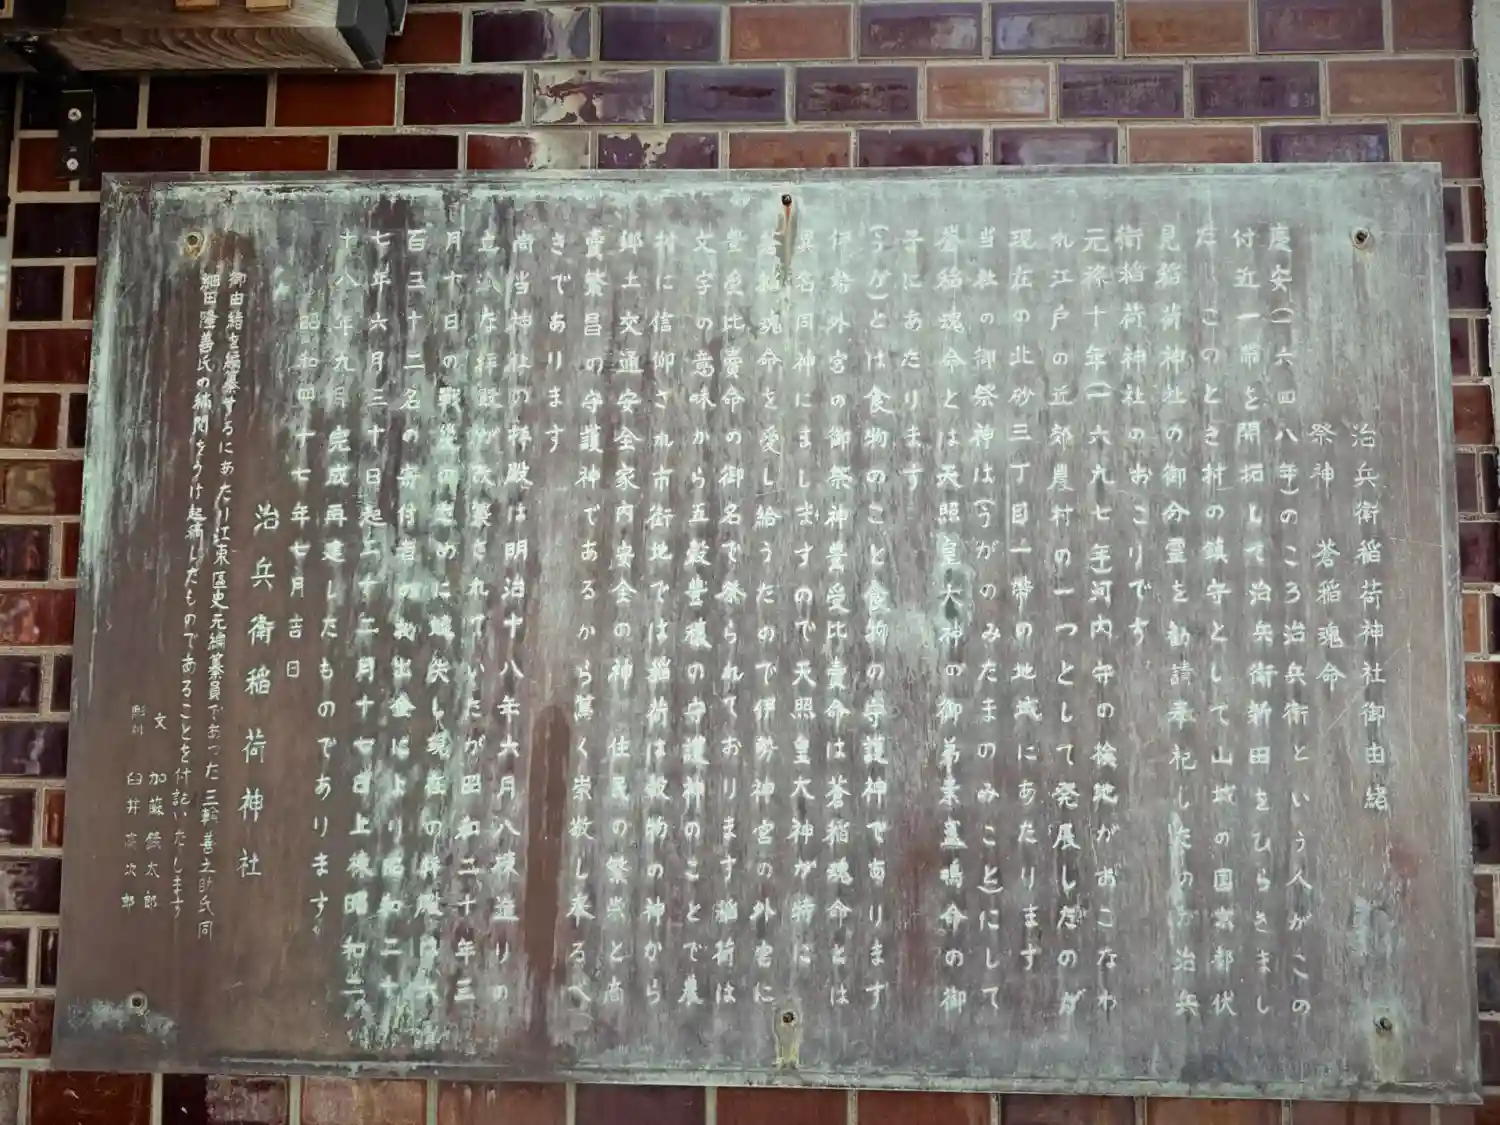 治兵衛稲荷神社御由緒
祭神 蒼稲魂命
慶安(一六四八年)のころ治兵衛という人がこの
付近一帯を開拓して治兵衛新田をひらきまし
た このとき村の鎮守として山城の国京都伏
見稲荷神社の御分霊を勧請奉祀したのが治兵
衛稲荷神社のおこりです
元禄十年(一六九七年)河内守の検地がおこなわ
れ江戸の近郊農村の一つとして発展したのが
現在の北砂三丁目一帯の地域にあたります
当社の御祭神は(うがのみたまのみこと)にして
蒼稲魂命とは天照皇大神の御弟素盞鳴命の御
子にあたります
(うが)とは食物のこと食物の守護神であります
伊勢外宮の御祭神豊受比賣命は蒼稲魂命とは
異名同神にましますので天照皇大神が特に
蒼稲魂命を愛し給うたので伊勢神宮の外宮に
豊受比賣命の御名で祭られております稲荷は
文字の意味から五穀豊穣の守護神のことで農
村に信仰され市街地では稲荷は穀物の神から
郷土交通安全家内安全の神住民の繁栄と商
賣繁昌の守護神であるから篤く崇敬し奉るべ
きであります
尚当神社の拝殿は明治十八年六月八棟造りの
立八な拝殿が改築されていたが昭和二十年三
月十日の戦災のために焼失し現在の拝殿は六
百三十二名の寄付者の出金により昭和二十
七年六月三十日起工十二月十七日上棟昭和二
十八年九月完成再建したものであります
昭和四十七年七月吉日
治兵衛稲荷神社
御由緒を編纂するにあたり江東區史元編纂員であった三輪善之助氏同
細田隆善氏の補閲をうけ起稿したものであることを付記いたします
文 加藤鐡太郎
彫刻 臼井高次郎